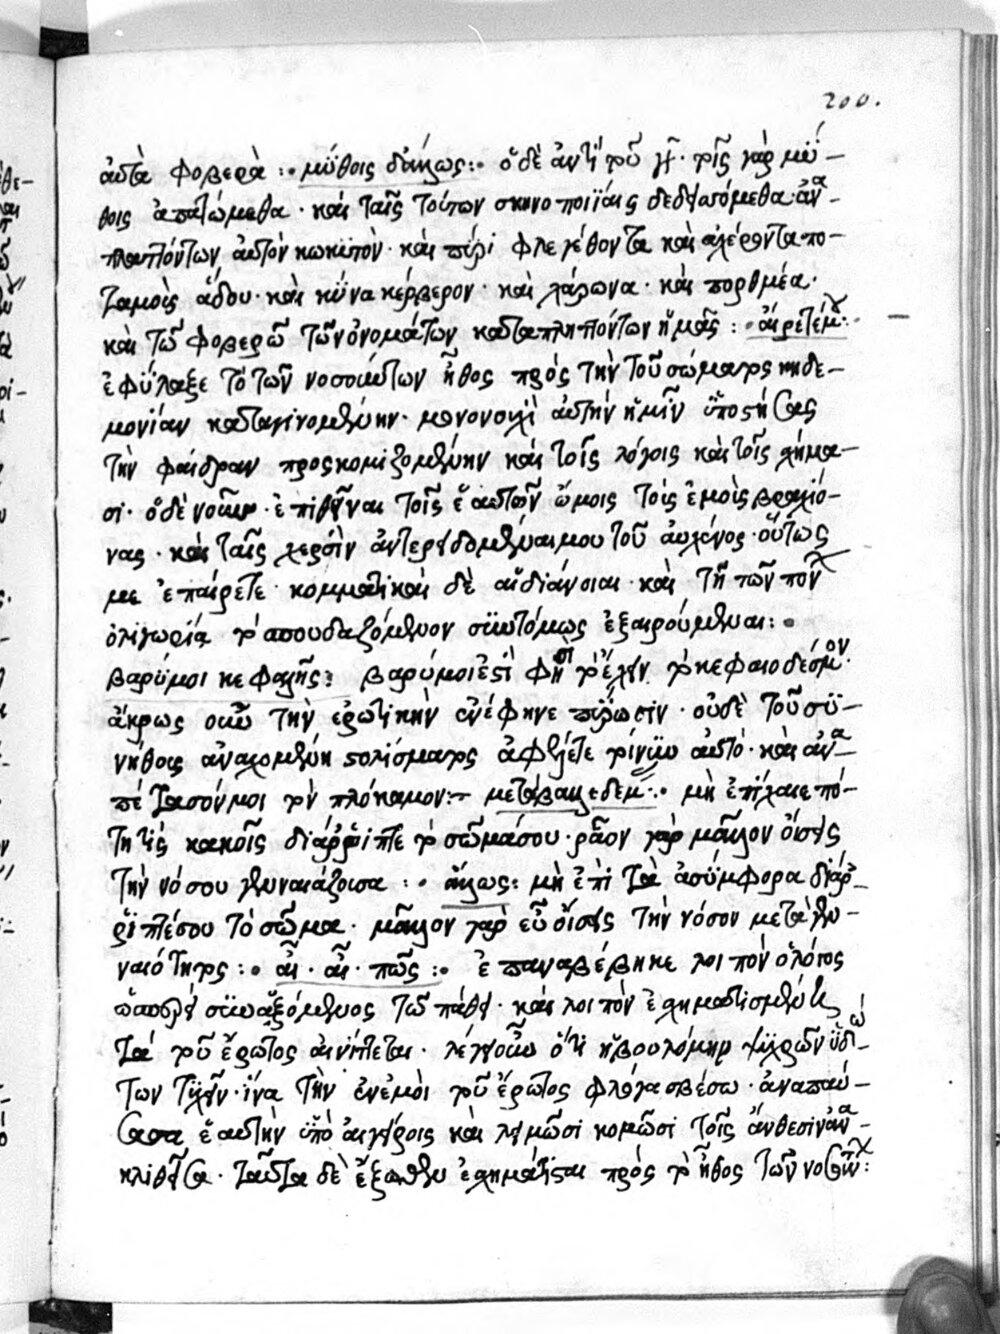 200.
αὐτὰ φοβερὰ :· μύθοις δ' ἄλλως :· ὁ δὲ ἀντὶ τοῦ γὰρ· τοῖς γὰρ μύ–
θοις ἀπατώμεθα· καὶ ταῖς τούτων σκηνοποιΐαις δεδιττόμεθα· ἀνα–
πλαττόντων αὐτὸν κωκυτὸν· καὶ πυρι φλεγέθοντα καὶ ἀχέροντα πο–
ταμοὶς ἅδου· καὶ κύνα κέρβερον· καὶ χάρωνα· καὶ πορθμέα·
καὶ τῶ φοβερῶ τῶν ὀνομάτων καταπληττόντων ἡμᾶς : · αἴρετέ μου :·
ἐφύλαξε τὸ τῶν νοσούντων ἦθος πρὸς τὴν τοῦ σώματος κηδε–
μονίαν καταγινομένην· μονονουχὶ αὐτὴν ἡμῖν ὑποστήσας
τὴν φαίδραν προσκομιζομένην καὶ τοῖς λόγοις καὶ τοῖς σχήμα–
σι· ὁ δὲ νοῦς· ἐπιθεῖναι τοῖς ἑαυτῶν ὤμοις τοὶς ἐμοὶς βραχιό–
νας· καὶ ταῖς χερσὶν ἀντερειδομέναι μου τοῦ ὠλένος· οὕτως
με ἐπαίρετε· κομματικαὶ δὲ αἱ διάνοιαι· καὶ τῆ τῶν πολλῶν
ὀλιγωρία τὸ σπουδαζόμενον συντόμως ἐξαιρούμεναι : ·
βαρύ μοι κεφαλῆς : βαρύ μοι ἐστὶ φησὶ τὸ ἔχειν τὸ κεφαλόδεσμον·
ἄκρως οὖν τὴν ἐρωτικὴν ἀνέφηνε πύρωσιν· οὐδὲ τοῦ συ–
νήθους ἀναχομένη στολίσματος ἀφέλετε τοίνυν αὐτό· καὶ ἀνα–
πέτασόν μοι τὸν πλόκαμον :– μετάβαλλε δέμας :· μὴ ἐπίχαλεπό–
τητι κακοῖς διάρριπτε τὸ σῶμά σου· ῥᾶον γὰρ μᾶλλον οἴσεις
τὴν νόσον γενναιάζουσα : · ἄλλως : μὴ ἐπὶ τὰ ἀσύμφορα διάρ–
ριπτέ σου τὸ σῶμα· μᾶλλον γὰρ εὖ οἴσεις τὴν νόσον μετὰ γεν–
ναιότητος : · αἶ· αἶ· πῶς :· ἐπαναβέβηκε λοιπὸν ὁ λόγος
ὡσπερεὶ συναυξόμενος τῶ πάθει· καὶ λοιπὸν ἐσχηματισμένως
τὰ τοῦ ἔρωτος αἰνίττεται· λέγει οὖν ὅτι ἠβουλόμην ψυχρῶν ὑδά–
των τυχεῖν· ἵνα τὴν ἐν ἐμοὶ τοῦ ἔρωτος φλόγα σβέσω· ἀναπαύ–
σασα ἑαυτὴν ὑπὸ αἰγείροις καὶ λειμῶσι κομῶσι τοῖς ἄνθεσιν ἀνα–
κλιθεῖσα· ταῦτα δὲ ἔξωθεν ἐσχημάτισται πρὸς τὸ ἦθος τῶν νοσούντων :